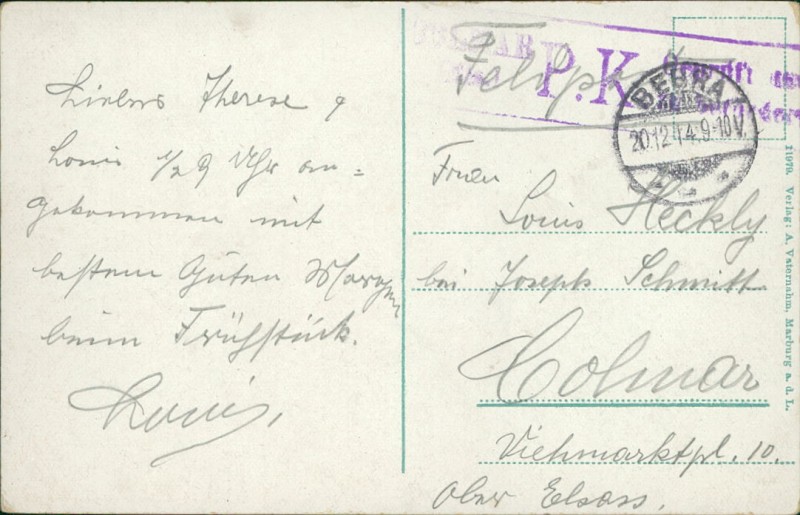 Liebes Therese &
Louis 1/2 9 Uhr an=
gekommen mit
bestem Guten Morgen
beim Frühstück.
Louis.
Feldpost
COLMAR
P.K.
Geprüft und
BEBRA
20.12.14.9-10V.
Frau
Louis Heckly
bei Joseph Schmitt
Colmar
Viehmarktpl. 10.
Ober Elsass.
11979. Verlag: A. Vaternahm, Marburg a. d. L.